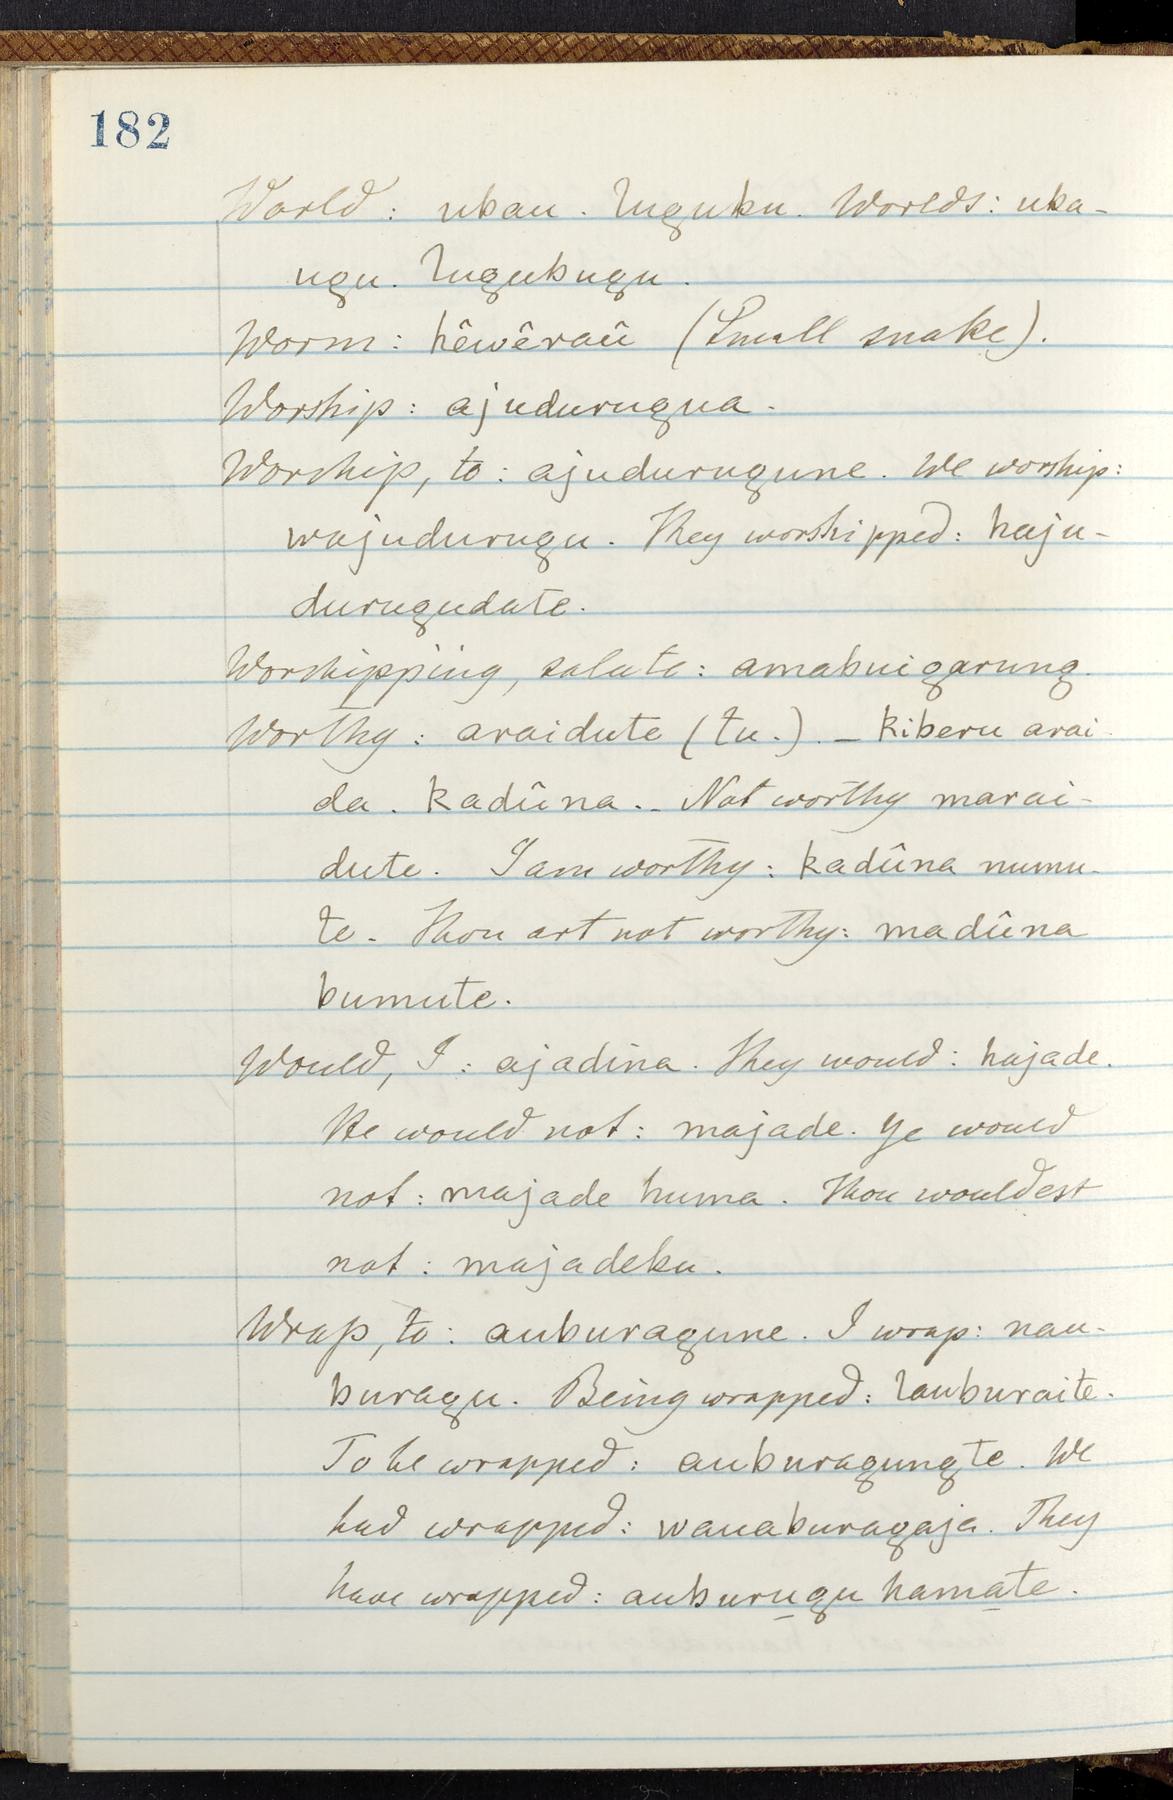 182
World: ubau. luguku. Worlds: uba-
ugu. lugubugu.
Worm: hêwêraû (Small snake).
Worship: ajudurugua.
Worship, to: ajudurugune. We worship:
wajudurugu. They worshipped: haju-
durugudate.
Worshipping, salute: amabuigarung.
Worthy: araidute (tu.). – kiberu arai-
da. kadûna. – Not worthy marai-
dute. I am worthy: kadûna numu-
te. Thou art not worthy: madûna
bumute.
Would, I: ajadina. They would: hajade.
He would not: majade. Ye would
not: majade huma. Thou wouldest
not: majadeku.
Wrap, to: auburagune. I wrap: nau-
buragu. Being wrapped: lauburaite.
To be wrapped: auburagungte. We
had wrapped: wauaburagaja. They
have wrapped: auburugu hamate.